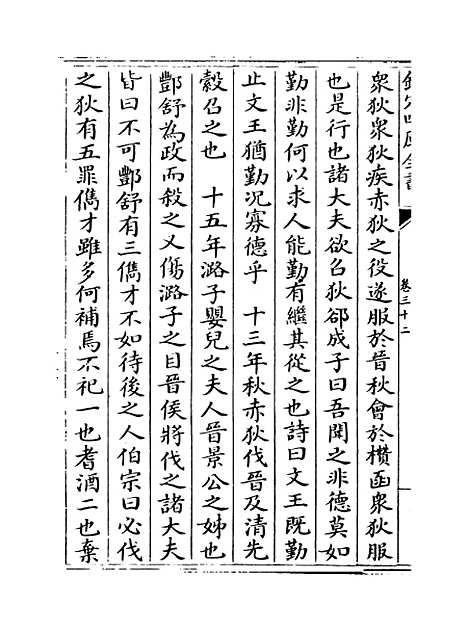 欽定四庫全書
卷三十二
衆狄衆狄疾赤狄之役遂服於晉秋會於欑函衆狄服
也是行也諸大夫欲召狄郤成子曰吾聞之非德莫如
勤非勤何以求人能勤有繼其從之也詩曰文王既勤
止文王猶勤况寡德乎 十三年秋赤狄伐晉及清先
縠召之也 十五年潞子嬰兒之夫人晉景公之姊也
酆舒為政而殺之又傷潞子之目晉侯將伐之諸大夫
皆曰不可酆舒有三儁才不如待後之人伯宗曰必伐
之狄有五罪儁才雖多何補焉不祀一也耆酒二也棄